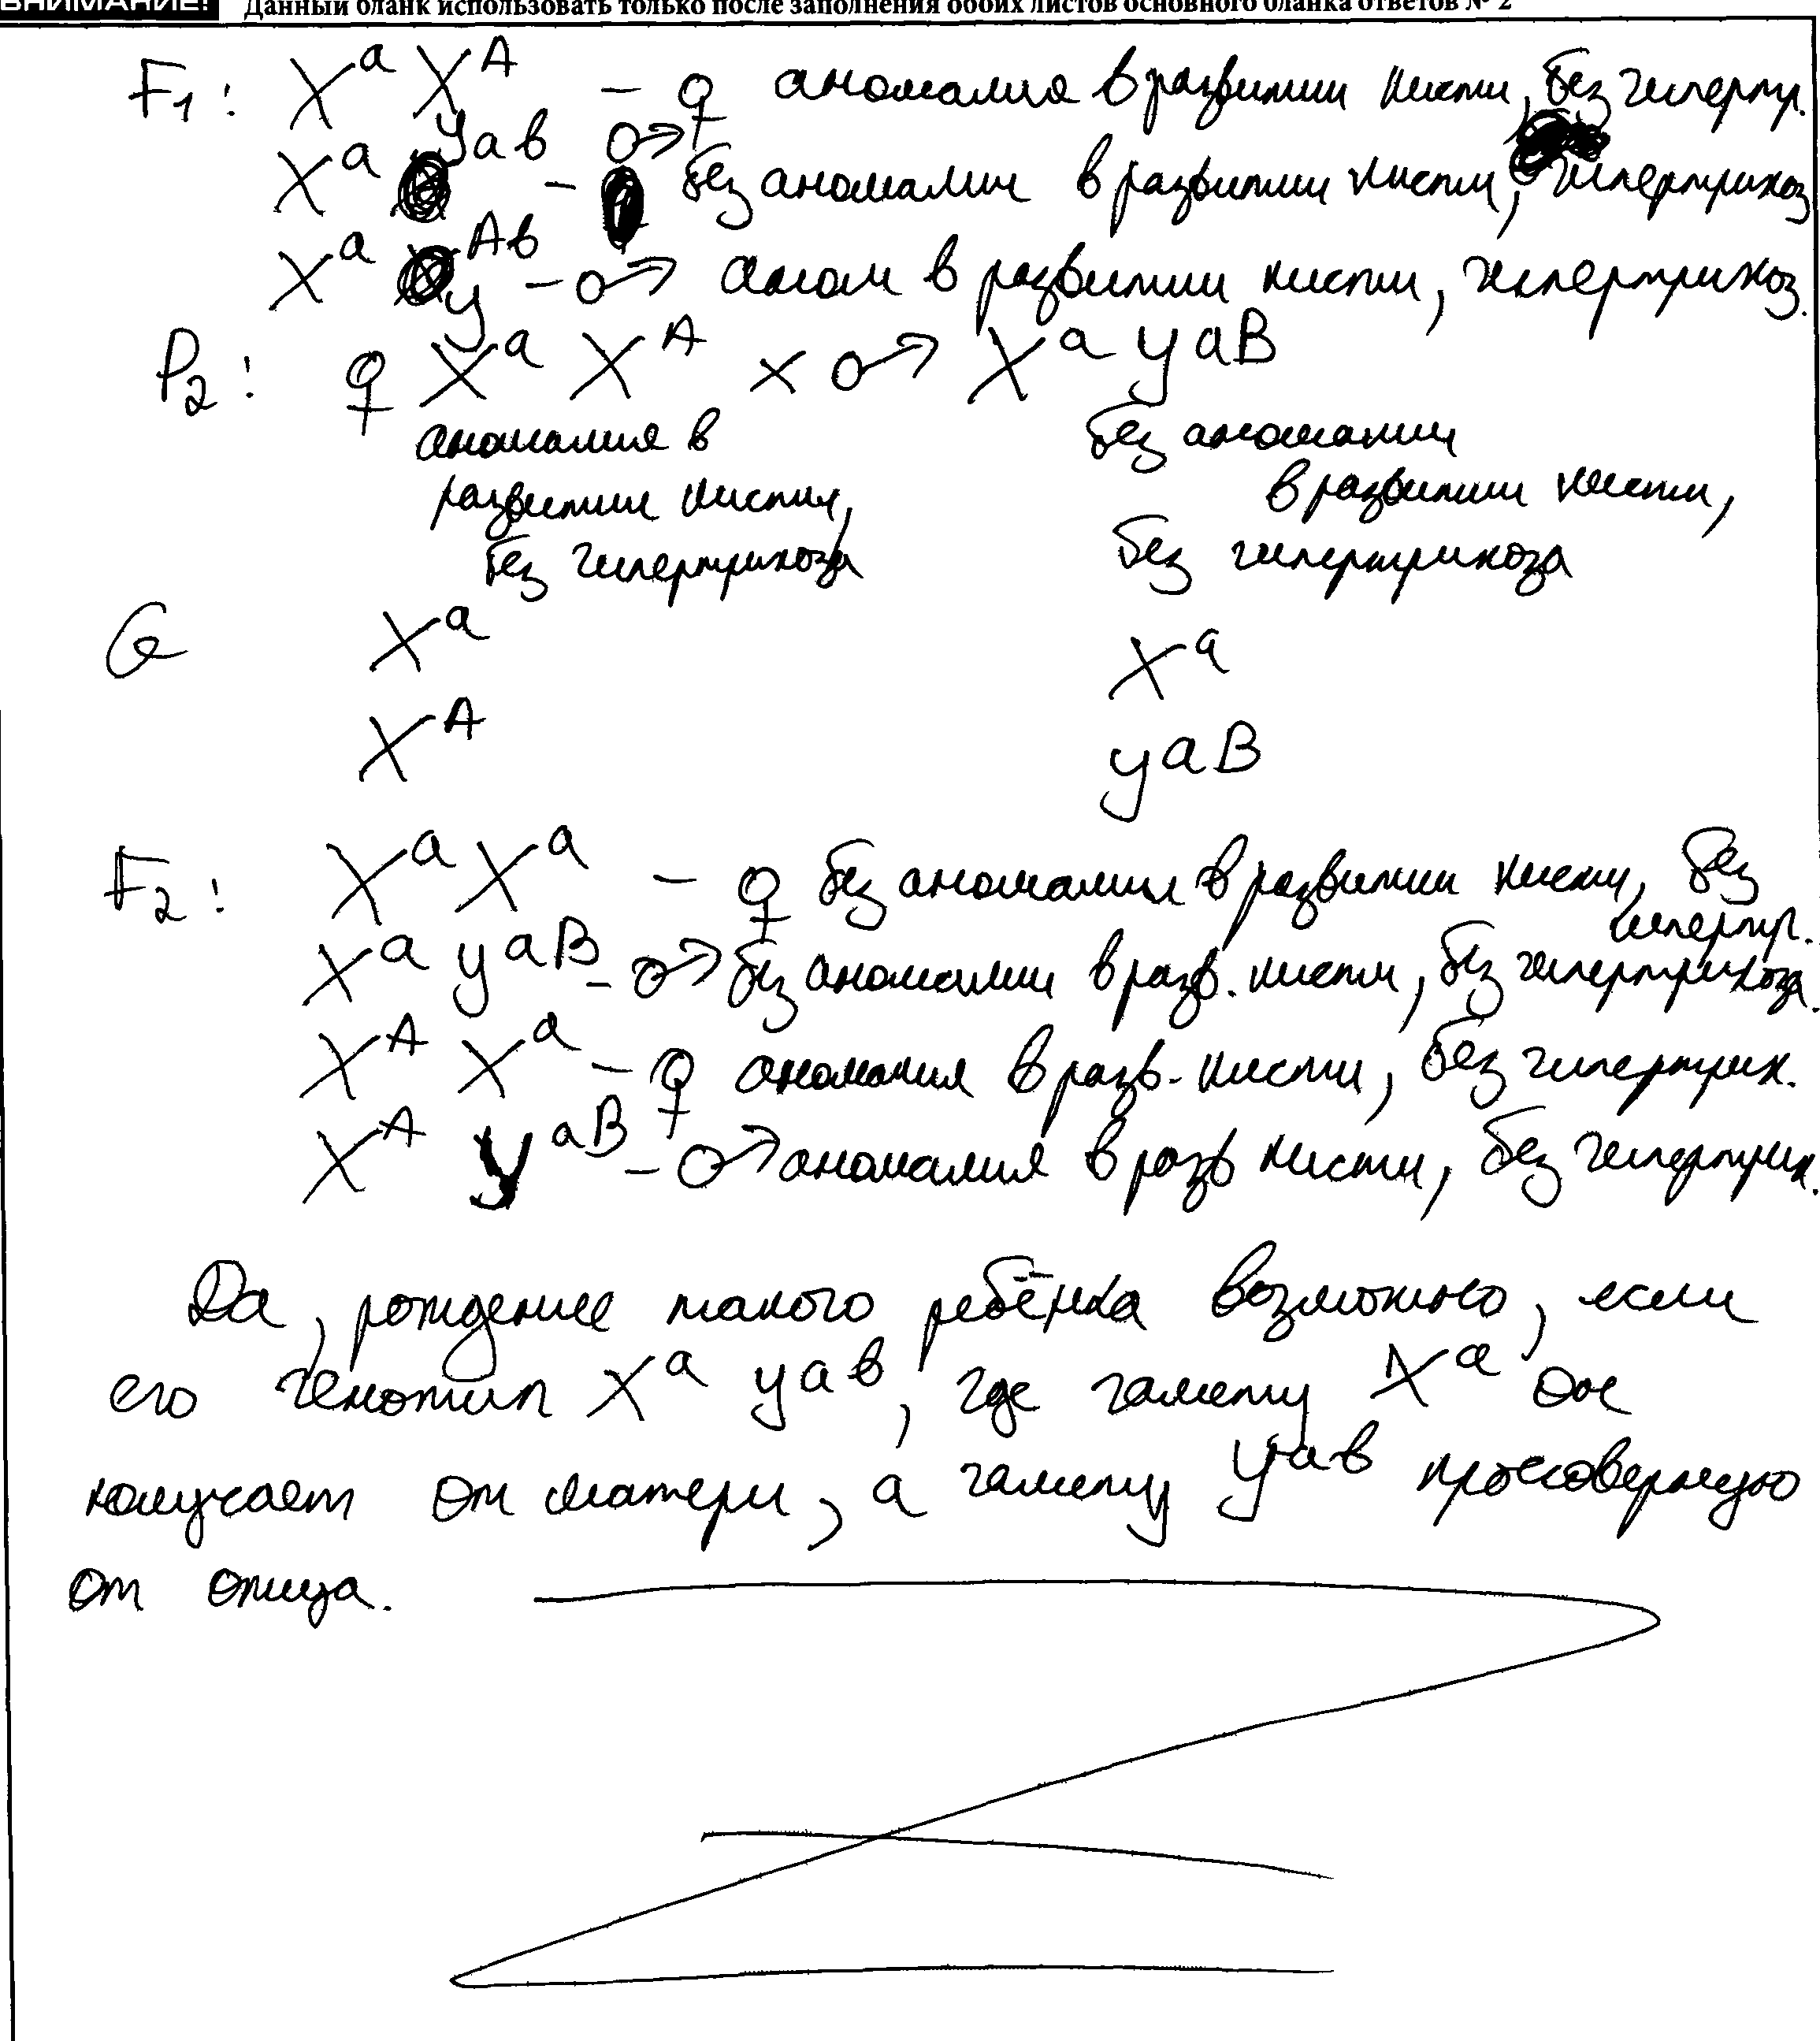 ВНИМАНИЕ! Данный бланк использовать только после заполнения обоих листов основного бланка ответов № 2
F₁: Xᵃ Xᴬ – ♀ аномалия в развитии кисти, без гипертр.
Xᵃ Yᵃᵇ – ♂ без аномалии в развитии кисти, гипертрихоз
Xᵃ yᴬᵇ – ♂ аном в развитии кисти, гипертрихоз.
P₂: ♀ Xᵃ Xᴬ x ♂ Xᵃ yᵃᴮ
аномалия в без аномалии
развитии кисти, в развитии кисти,
без гипертрихоза без гипертрихоза
G Xᵃ Xᵃ
Xᴬ yᵃᴮ
F₂: Xᵃ Xᵃ – ♀ без аномалии в развитии кисти, без гипертр.
Xᵃ yᵃᴮ – ♂ без аномалии в разв. кисти, без гипертрихоза.
Xᴬ Xᵃ – ♀ аномалия в разв. кисти, без гипертрих.
Xᴬ yᵃᴮ – ♂ аномалия в разв кисти, без гипертрих.
Да, рождение такого ребёнка возможно, если
его генотип Xᵃ yᵃᵇ, где гамету Xᵃ он
получает от матери, а гамету Yᵃᵇ кроссоверную
от отца.